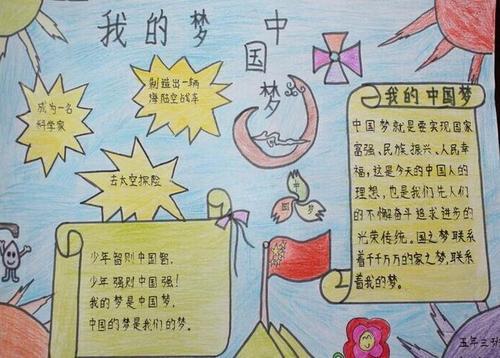 我的梦
中
国
梦
成为一名
科学家
制造出一辆
海陆空战车
去太空探险
中
国
梦
少年智则中国智，
少年强则中国强！
我的梦是中国梦，
中国的梦是我们的梦。
我的中国梦
中国梦就是要实现国家
富强、民族振兴、人民幸
福，这是今天的中国人的
理想，也是我们先人们
的不懈奋斗追求进步的
光荣传统。国之梦联系
着千千万万的家之梦，联系
着我的梦。
五年三班